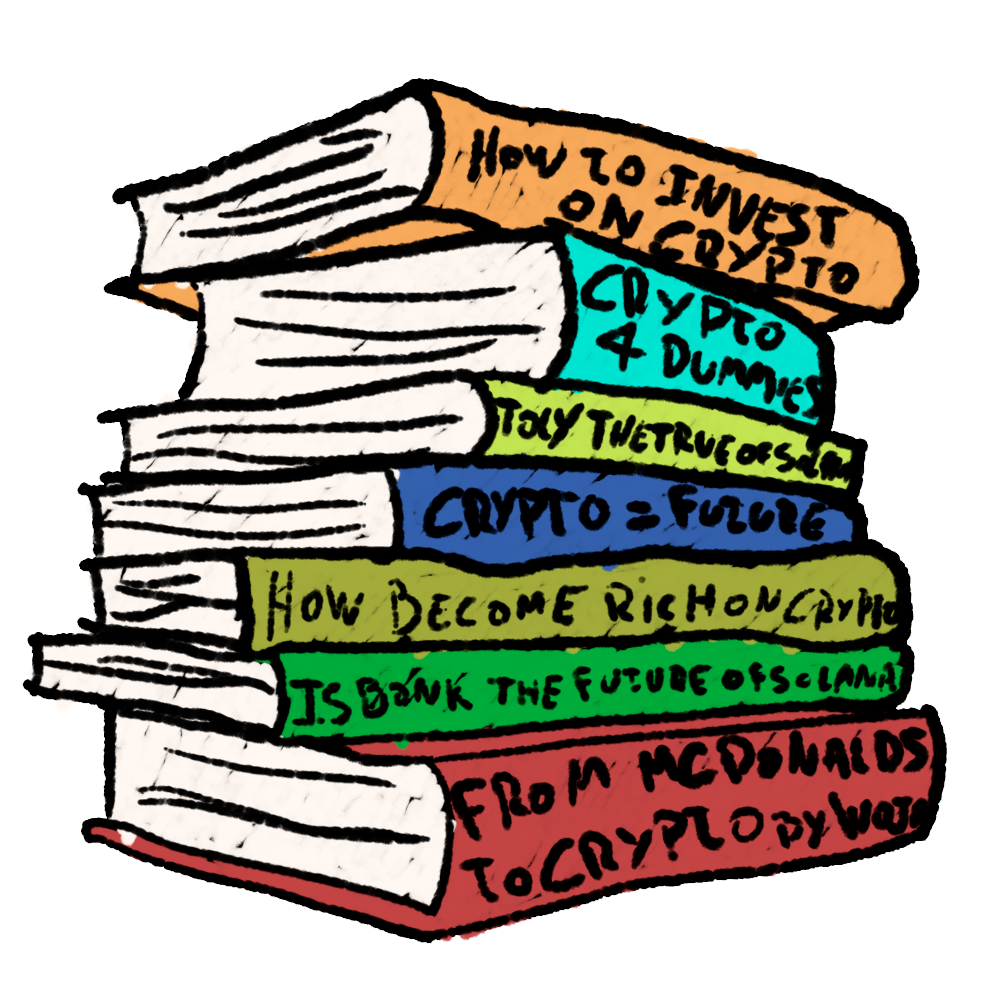 HOW TO INVEST
ON CRYPTO
CRYPTO
4 DUMMIES
TOLY THE TRUE OF SOLANA
CRYPTO = FUTURE
HOW BECOME RICH ON CRYPTO
IS BONK THE FUTURE OF SOLANA
FROM MCDONALDS
TO CRYPTO BY